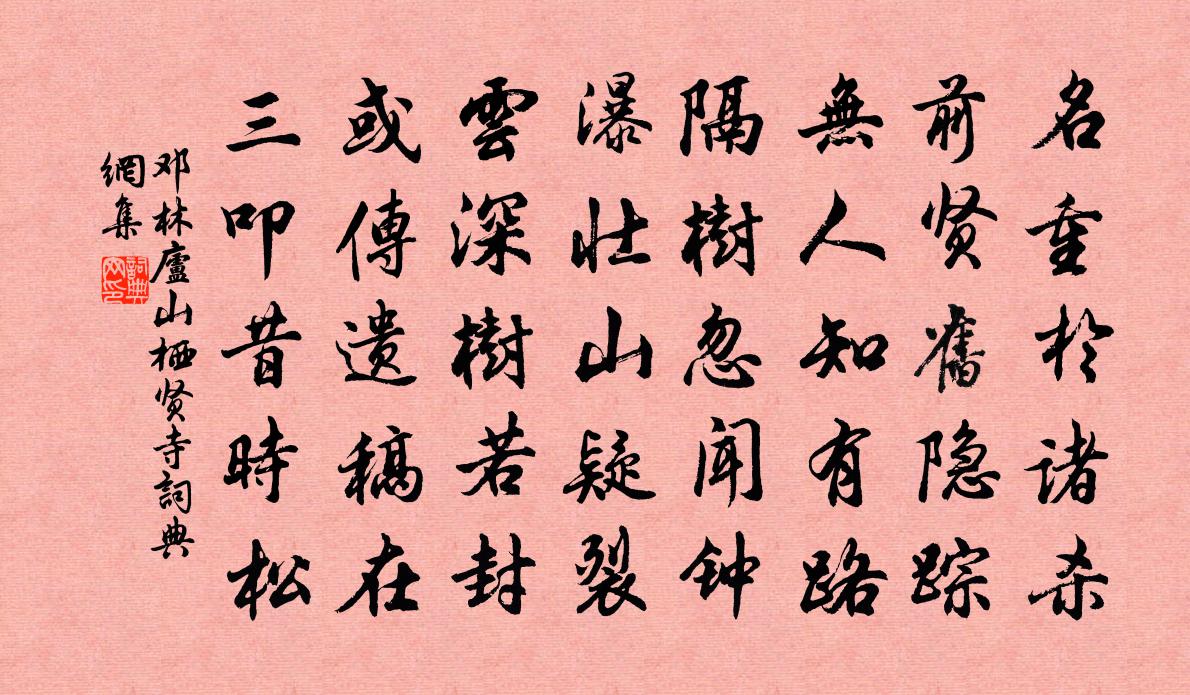 名重於诸杀
前贤舊隐踪
無人知有路
隔樹忽闻钟
瀑壮山疑裂
雲深樹若封
或傳遗稿在
三叩昔時松
邓林廬山栖贤寺詞典
網集
詞典
网印